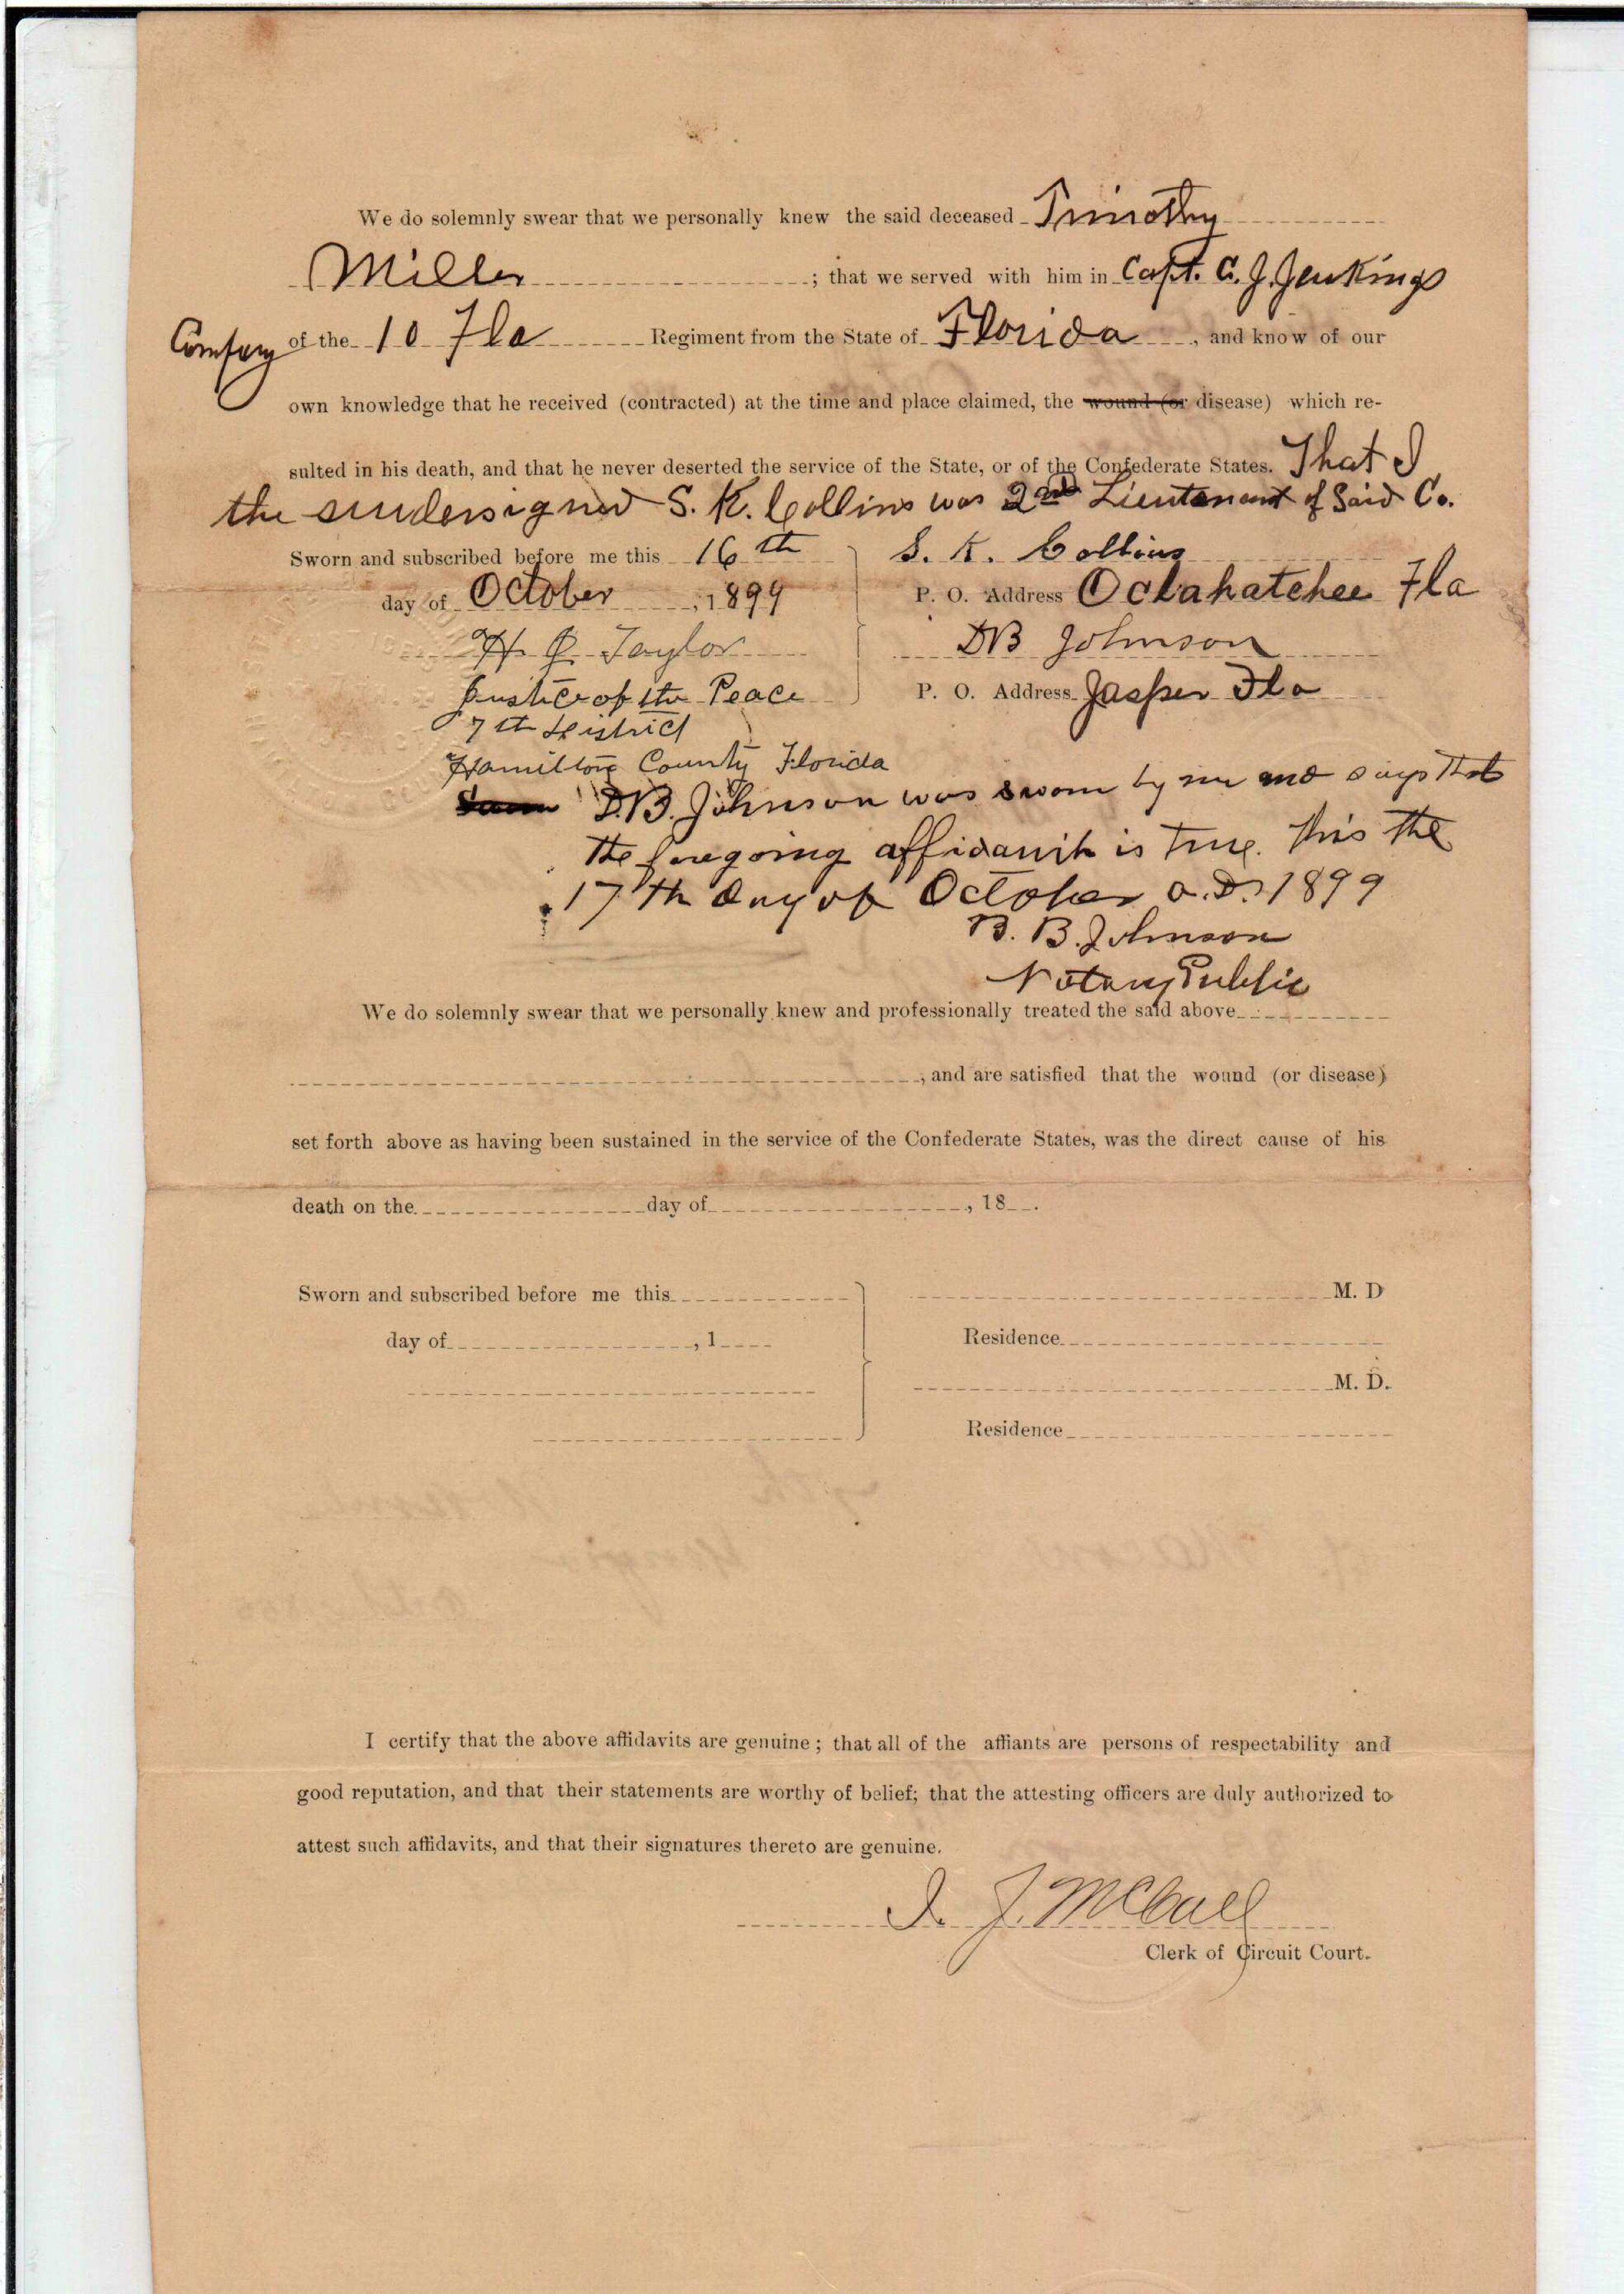 We do solemnly swear that we personally knew the said deceased Timothy
Miller ; that we served with him in Capt. C. J. Jenkings
Company of the 10 Fla Regiment from the State of Florida, and know of our
own knowledge that he received (contracted) at the time and place claimed, the wound (or disease) which re-
sulted in his death, and that he never deserted the service of the State, or of the Confederate States. That I
the undersigned S. K. Collins was 2nd Lieutenant of Said Co.
Sworn and subscribed before me this 16th
day of October, 1899
H Taylor
Justice of the Peace
7th District
Hamilton County Florida
S. K. Collins
P. O. Address Oclahatchee Fla
DB Johnson
P. O. Address Jasper Fla
D.B. Johnson was sworn by me and says that
the foregoing affidavit is true. This the
17th day of October A.D. 1899
B. B. Johnson
Notary Public
We do solemnly swear that we personally knew and professionally treated the said above
, and are satisfied that the wound (or disease)
set forth above as having been sustained in the service of the Confederate States, was the direct cause of his
death on the day of , 18 .
Sworn and subscribed before me this
day of , 1
M. D
Residence
M. D.
Residence
I certify that the above affidavits are genuine; that all of the affiants are persons of respectability and
good reputation, and that their statements are worthy of belief; that the attesting officers are duly authorized to
attest such affidavits, and that their signatures thereto are genuine.
J. McCall
Clerk of Circuit Court.